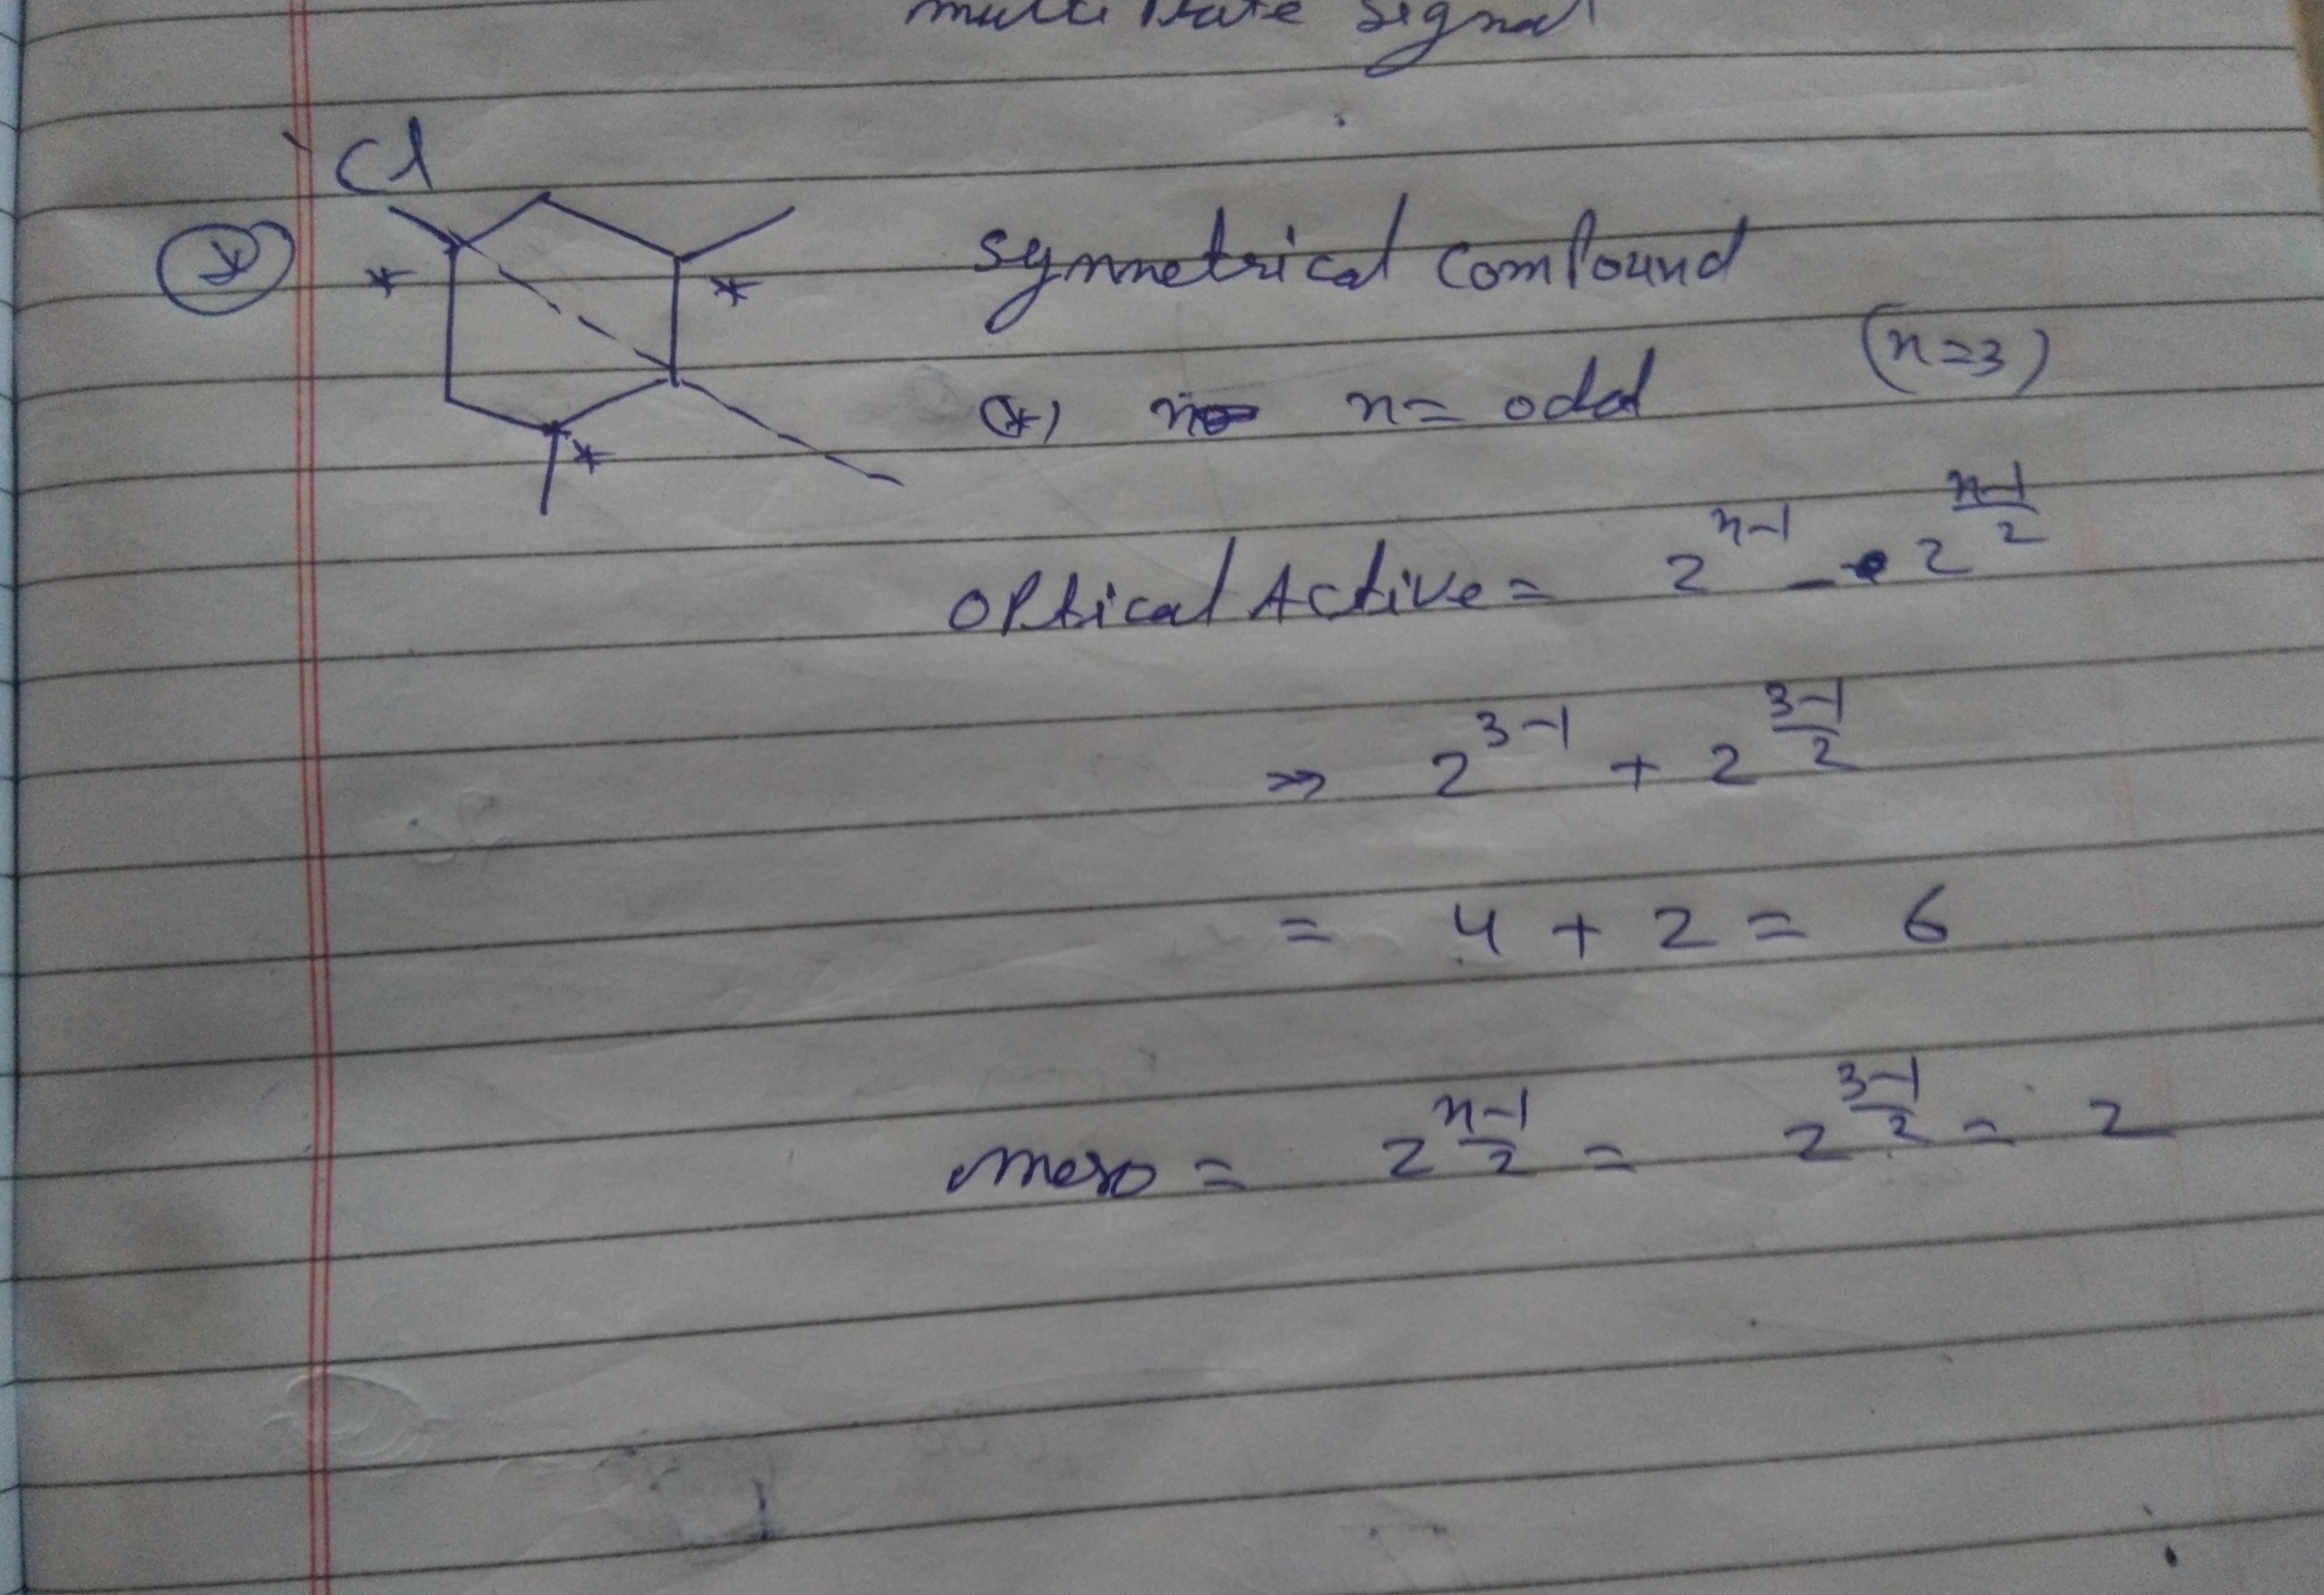 multi state signal
Cl
symmetrical compound
* * (*) n= odd (n=3)
*
optical Active = 2^{n-1} - 2^{\frac{n-1}{2}}
⇒ 2^{3-1} + 2^{\frac{3-1}{2}}
= 4 + 2 = 6
meso = 2^{\frac{n-1}{2}} = 2^{\frac{3-1}{2}} = 2